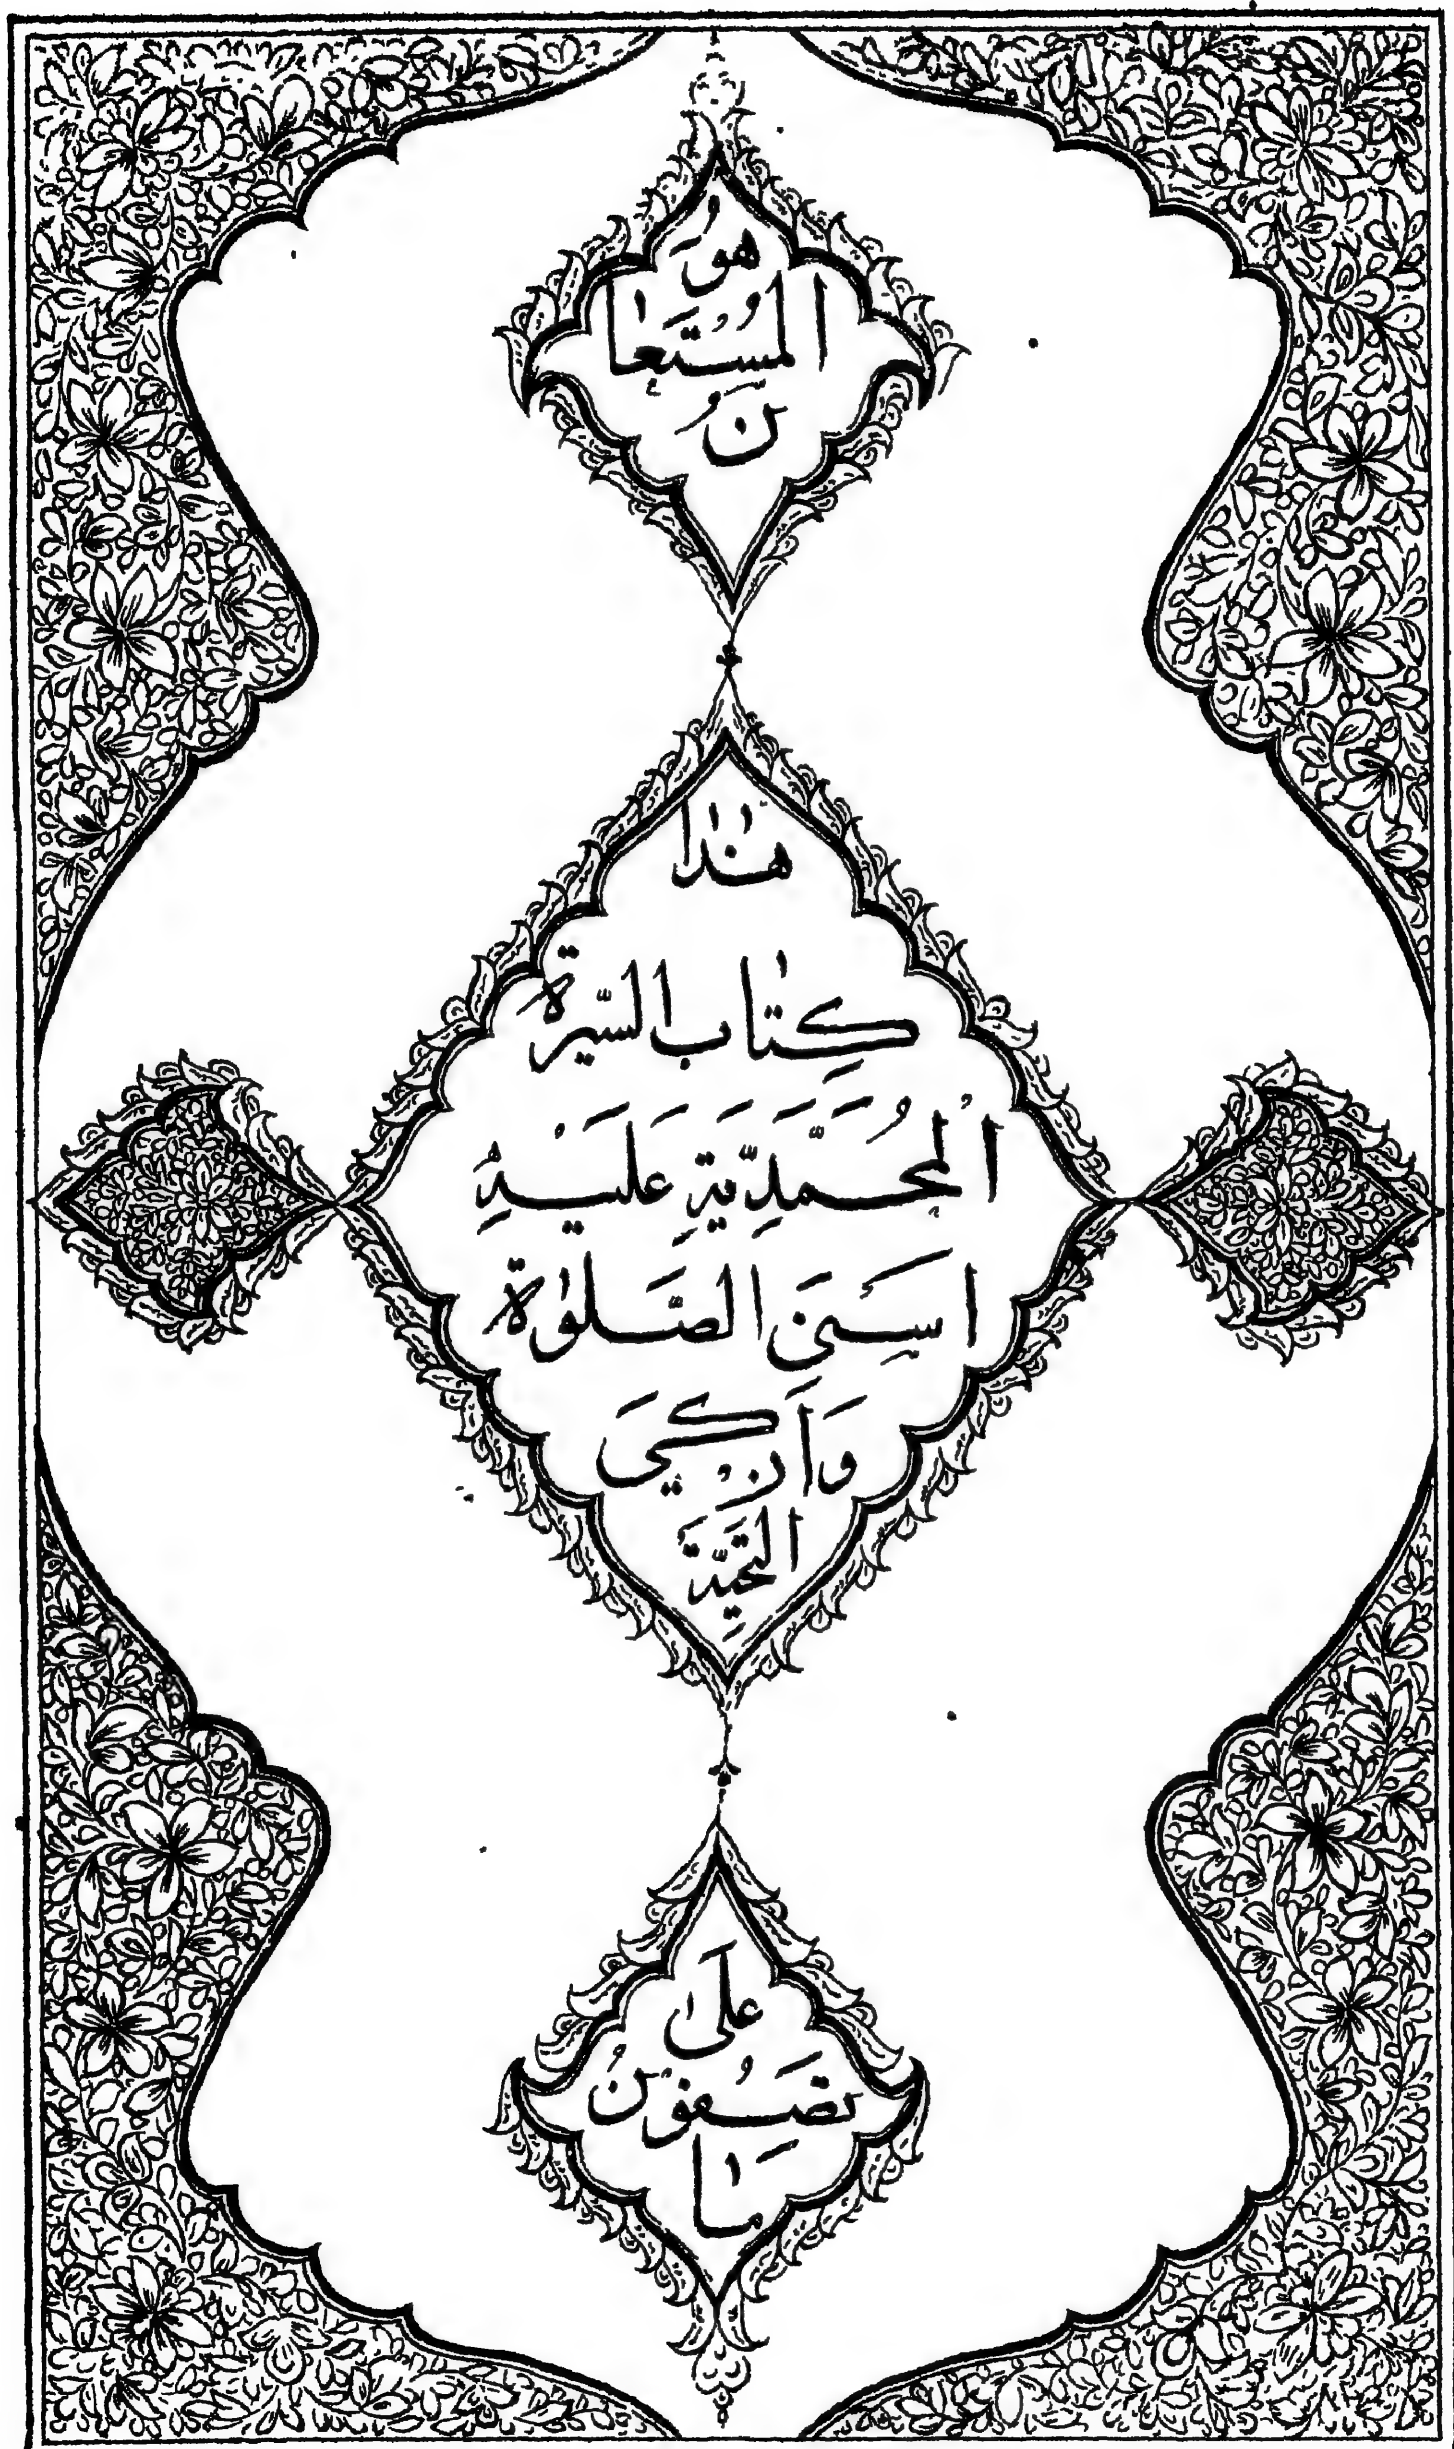 هُوَ
الْمُسْتَعَا
نُ
هٰذَا
كِتَاب السّيرة
الْمُحَمَّدِيّةِ عَلَيْهِ
اسنَى الصَّلوٰة
وَازْكَى
التَّحِيَّةَ
عَلَى
تَصِفُوْنَ
مَا